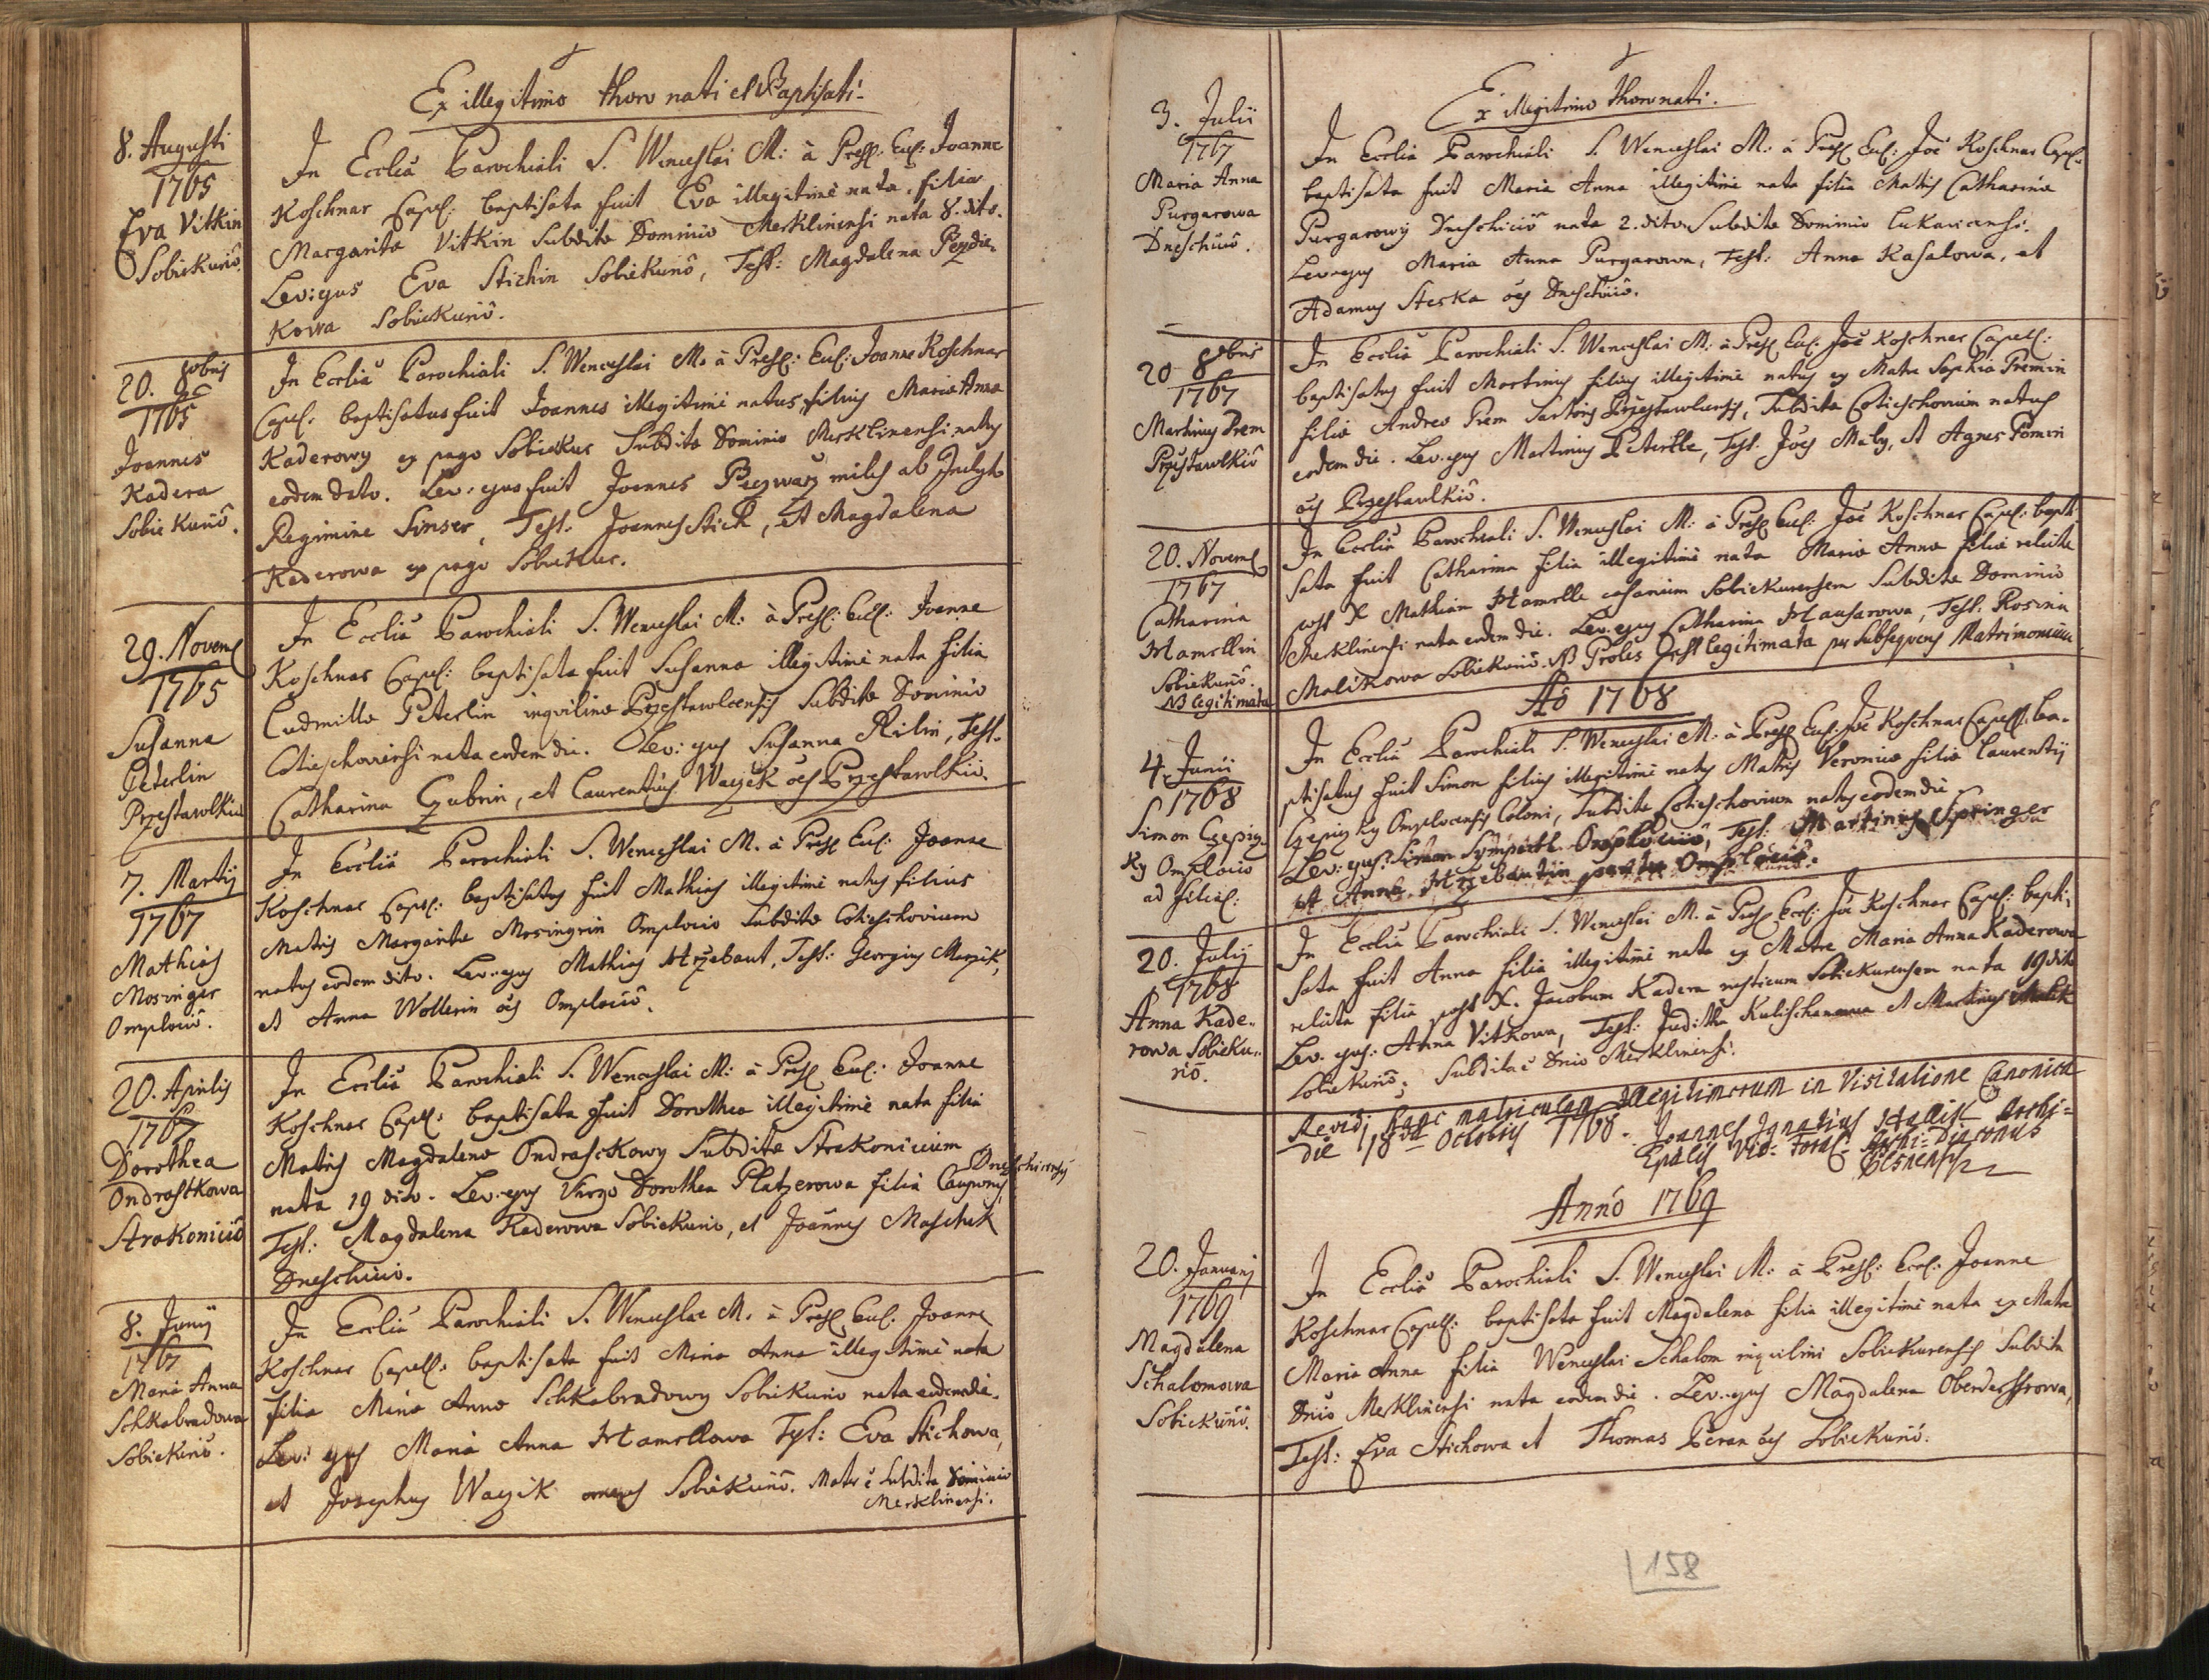 Ex illegitimo thoro nati et Baptisati.
8. Augusti
1765
Eva Vitkin
Sobiekurio.
In Ecclia Parochiali S. Wenceslai M: à Presb: Eccl: Joanne
Koschnar Capel: baptisata fuit Eva illegitimè nata, filia
Margaritæ Vitkin Subditæ Dominio Merklinensi nata 8. dito.
Lev: ejus Eva Stichin Sobiekurio, Test: Magdalena
Kowa Sobiekurio.
20. 8bris
1765
Joannes
Kadera
Sobiekurio.
In Ecclia Parochiali S. Wenceslai M. à Presb: Eccl: Joanne Koschnar
Capel: baptisatus fuit Joannes illegitimè natus, filius Mariæ Annæ
Kaderowy ex pago Sobiekur Subditæ Dominio Merklinensi natus
eodem dato. Lev: ejus fuit Joannes miles ab Inclyto
Regimine Sinser, Test: Joannes Stich, et Magdalena
Kaderowa ex pago Sobiekur.
29. Novemb
1765
Susanna
Peterlin
Przestawlkio
In Ecclia Parochiali S. Wenceslai M: à Presb: Eccl: Joanne
Koschnar Capel: baptisata fuit Susanna illegitimè nata filia
Ludmillæ Peterlin inquilinæ Przestawlcensis Subditæ Dominio
Cotieschoviensi nata eodem die. Lev: ejus Susanna Rilin, Test.
Catharina Czubrin, et Laurentius Waczek oes Przestawlkio.
7. Martij
1767
Mathias
Mosinger
Omplocio.
In Ecclia Parochiali S. Wenceslai M. à Presb Eccl: Joanne
Koschnar Capel: baptisatus fuit Mathias illegitimè natus filius
Matris Margaritæ Mosingrin Omplocio Subditæ Cotieschovium
natus eodem dito. Lev: ejus Mathias Hrzebaut, Test: Georgius
et Anna Wollerin oes Omplocio.
20. Aprilis
1767
Dorothea
Ondrastkowa
Strakonicio
In Ecclia Parochiali S. Wenceslai M: à Presb Eccl: Joanne
Koschnar Capel: baptisata fuit Dorothea illegitimè nata filia
Matris Magdalenæ Ondrasckowy Subditæ Strakonicium
nata 19 dito. Lev: ejus Virgo Dorothea Platzerowa filia Cauponis Dneschicensis
Test: Magdalena Kaderowa Sobiekurio, et Joannes Maschek
Dneschicio.
8. Junij
1767
Maria Anna
Schkabradowa
Sobiekurio.
In Ecclia Parochiali S. Wenceslai M. à Presb Eccl. Joanne
Koschnar Capell: baptisata fuit Maria Anna illegitimè nata
filia Mariæ Annæ Schkabradowy Sobiekurio nata eodem die.
Lev: ejus Maria Anna Hamrllowa Test: Eva Stichowa,
et Josephus Waczik omnes Sobiekurio. Mater e Subdita Dominio
Merklinensi.
Ex illegitimo thoro nati.
3. Julii
1767
Maria Anna
Purgarowa
Dneschicio.
In Ecclia Parochiali S. Wenceslai M: à Presb Eccl: Joë Koschnar Capel:
baptisata fuit Maria Anna illegitimè nata filia Matris Catharinæ
Purgarowy Dneschicio nata 2. dito Subditæ Dominio Lukavicensi.
Lev: ejus Maria Anna Purgarowa, Test: Anna Kasalowa, et
Adamus Sterka oes Dneschicio.
20 8bris
1767
Martinus Prem
Przestawlkio
In Ecclia Parochiali S. Wenceslai M: à Presb Eccl: Joë Koschnar Capell:
baptisatus fuit Martinus filius illegitimè natus ex Matre Sophia Premin
filia Andreæ Prem Sartoris Przestawlcensis, Subdita Cotieschovium natus
eodem die. Lev: ejus Martinus Peterlle, Test. Joes Maly, et Agnes
oes Przestawlkio.
20. Novemb
1767
Catharina
Hamrllin
Sobiekurio.
NB legitimata
In Ecclia Parochiali S. Wenceslai M: à Presb Eccl: Joë Koschnar Capel: bapti
sata fuit Catharina filia illegitimè nata Mariæ Annæ filiæ relictæ
post X Mathiam Hamrlle casarium Sobiekurensem Subditæ Dominio
Merklinensi nata eodem die. Lev: ejus Catharina Hausarowa, Test: Rosina
Malikowa Sobiekurio. NB Proles est legitimata per subsequens Matrimonium.
Ao 1768
4. Junii
1768
Simon Czepiz
ky Omplocio
ad filial:
In Ecclia Parochiali S. Wenceslai M: à Presb Eccl: Joë Koschnar Capell: ba-
ptisatus fuit Simon filius illegitimè natus Matris Veronicæ filiæ Laurentij
Czepizky Omplocensis Coloni, Subditæ Cotieschovium natus eodem die
Lev: ejus: Simon Omplocio, Test: Martinus Springer
et Anna Hrzebautin Omplocio.
20. Julij
1768
Anna Kade-
rowa Sobieku-
rio.
In Ecclia Parochiali S. Wenceslai M. à Presb Eccl: Joë Koschnar Capel: bapti-
sata fuit Anna filia illegitimè nata ex Matre Maria Anna Kaderowa
relicta filia post X. Jacobum Kadera rusticum Sobiekurensem nata 19 dito
Lev. ejus: Anna Vitkowa, Test: Juditha et Martinus Malik
Sobiekurio. Subdita e Dnio Merklinensi.
Revidi hanc matriculam Illegitimorum in Visitatione Canonica
die 18va Octobris 1768. Joannes Ignatius Archi-
Epalis Vic: Foral: Archi-Diaconus
Pilsnensis
Anno 1769
20. Januarij
1769
Magdalena
Schalomowa
Sobiekurio.
In Ecclia Parochiali S. Wenceslai M: à Presb: Eccl: Joanne
Koschnar Capell: baptisata fuit Magdalena filia illegitimè nata ex Matre
Maria Anna filia Wenceslai Schalom inquilini Sobiekurensis Subdita
Dnio Merklinensi nata eodem die. Lev: ejus Magdalena
Test: Eva Stichowa et Thomas Beran oes Sobiekurio.
158